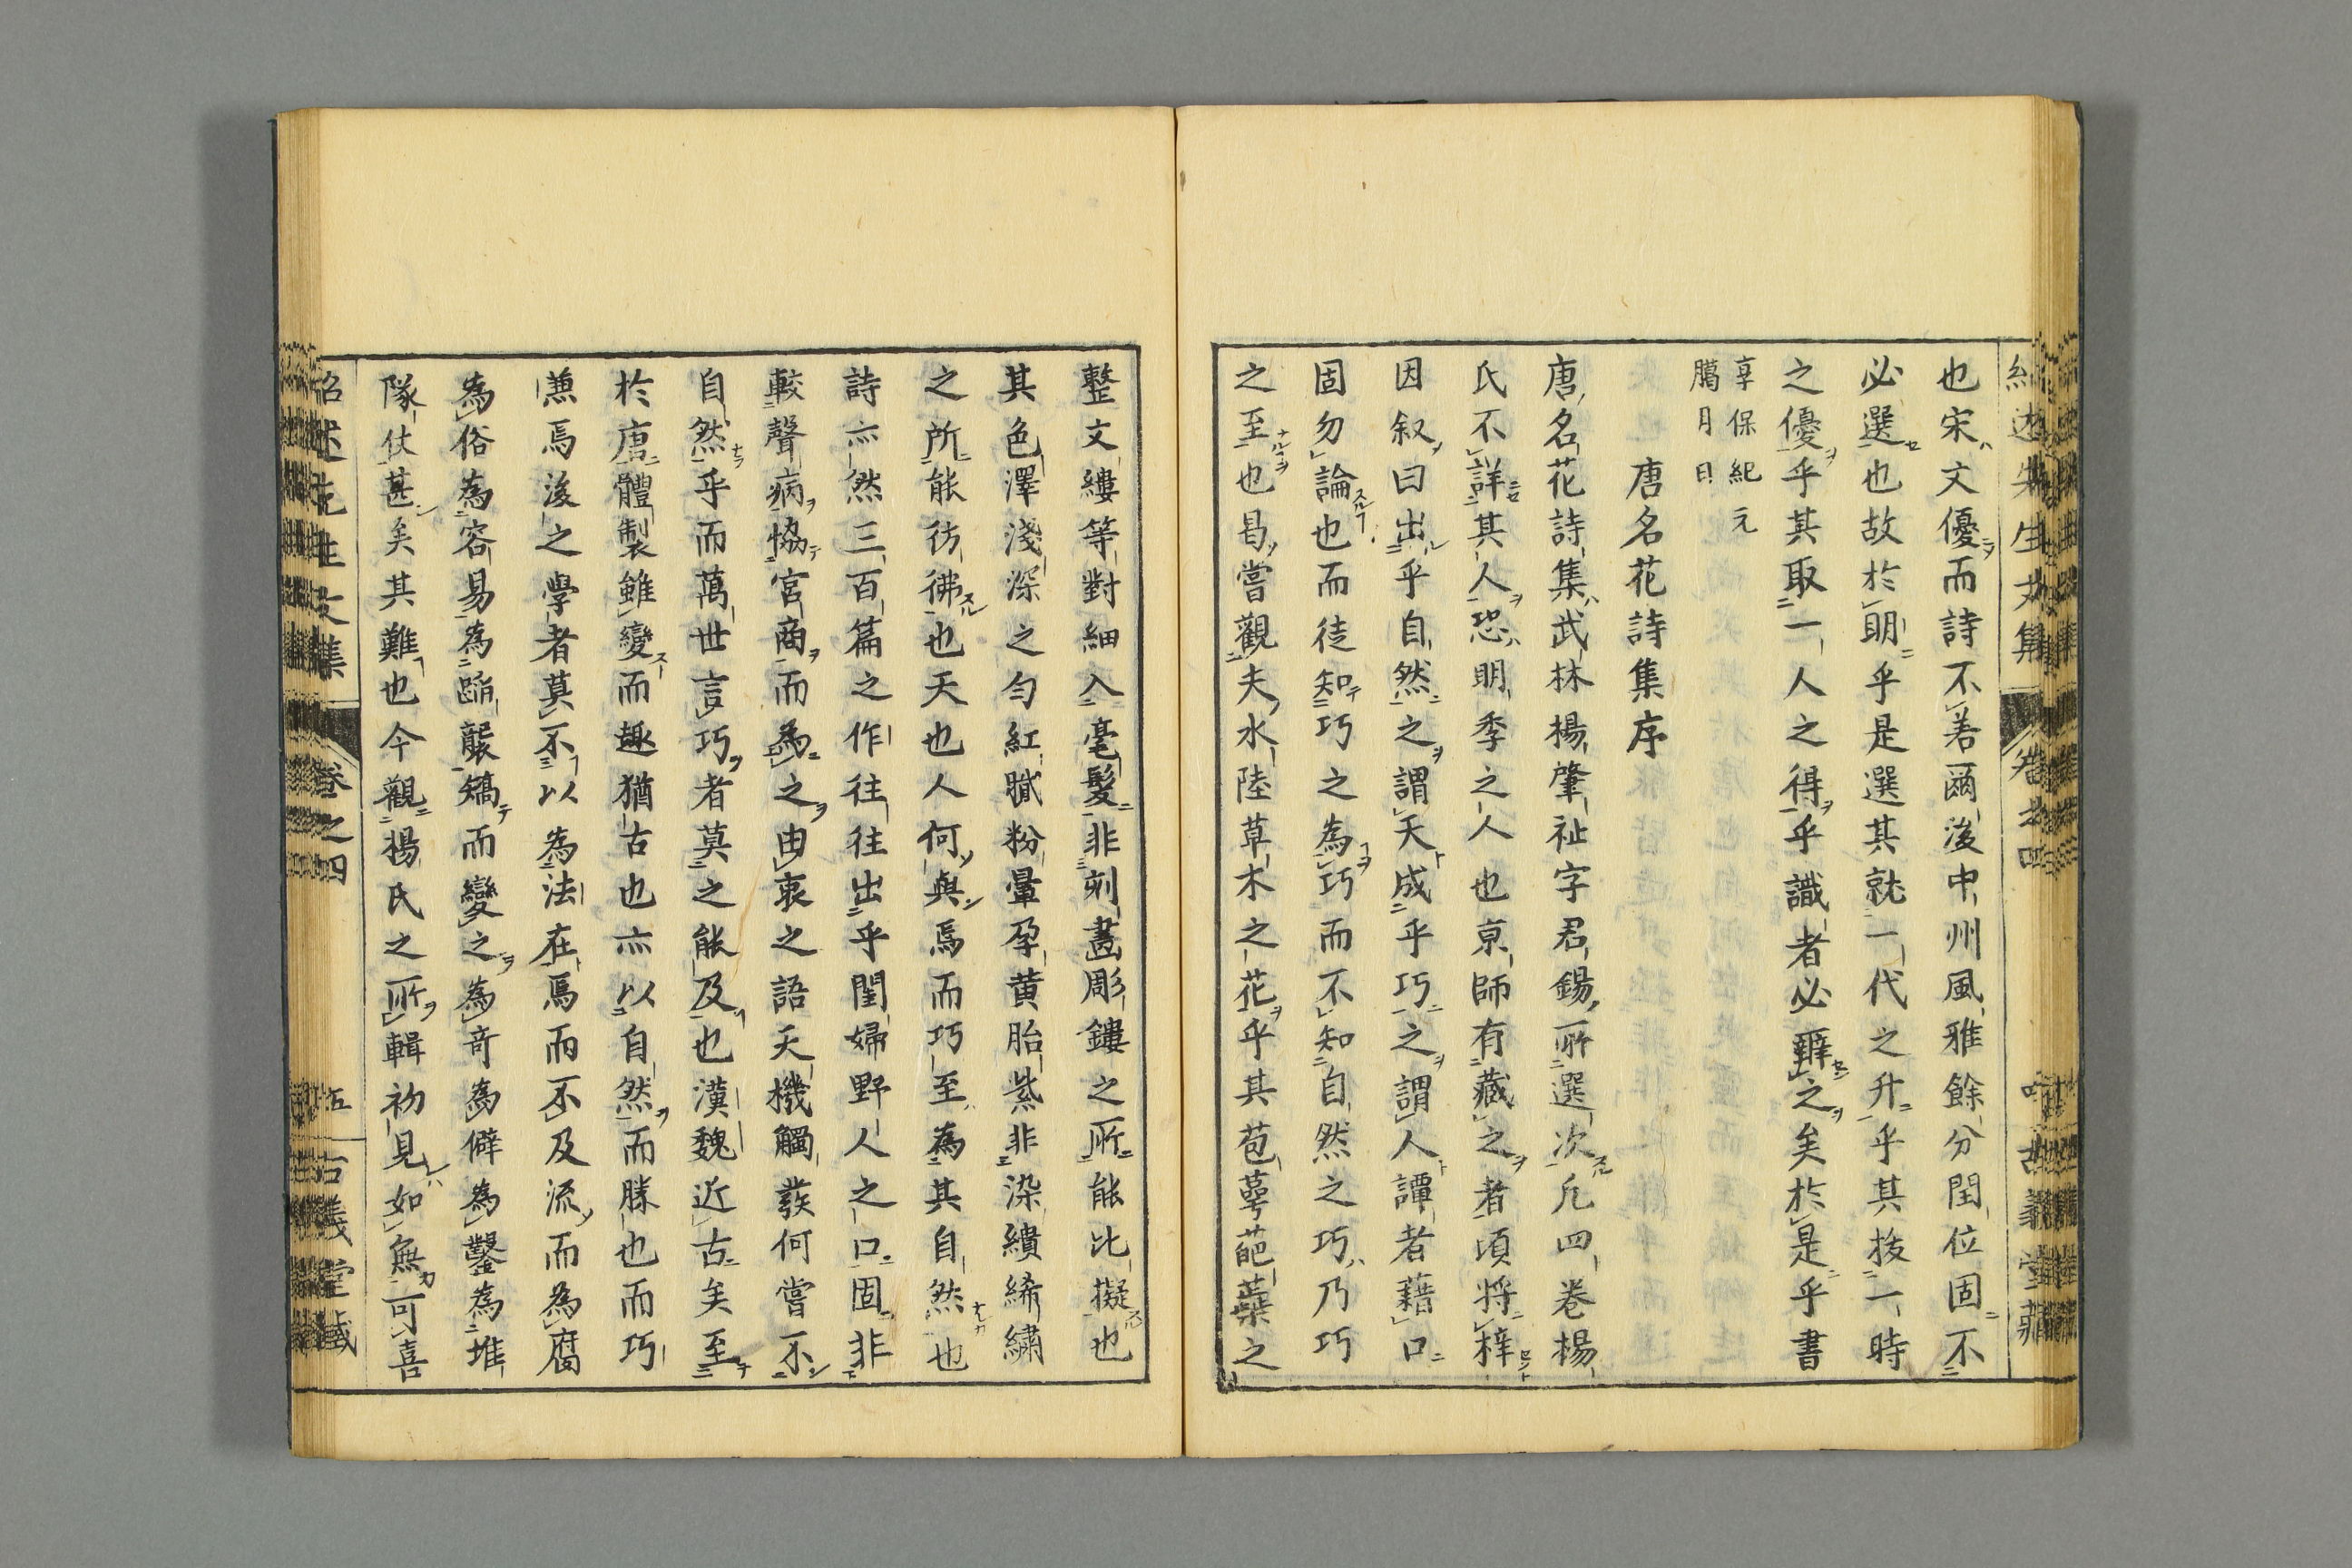 也宋文優而詩不若爾後中州風雅餘分閏位固不
必選也故於明乎是選其就一代之升乎其拔一時
之優乎其取一人之得乎識者必辭之矣於是乎書
享保紀元
臈月日
唐名花詩集序
唐名花詩集武林楊肇祉字君錫所選次凡四卷楊
氏不詳其人恐明季之人也京師有藏之者頃將梓
因叙曰出乎自然之謂天成乎巧之謂人譚者藉口
固勿論也而徒知巧之為巧而不知自然之巧乃巧
之至也曷嘗觀夫水陸草木之花乎其苞萼葩蘂之
整文縷等對細入毫髮非刻畫彫鏤之所能比擬也
其色澤淺深之勻紅膩粉暈孕黄胎紫非染繢絺繡
之所能彷彿也天也人何與焉而巧至為其自然也
詩亦然三百篇之作往往出乎閨婦野人之口固非
較聲病恊宮商而為之由衷之語天機觸發何嘗不
自然乎而萬世言巧者莫之能及也漢魏近古矣至
於唐體製雖變而趣猶古也亦以自然而勝也而巧
焉後之學者莫不以為法在焉而不及流而為腐
為俗為容易為蹈襲矯而變之為竒為僻為鑿為堆
隊伏甚矣其難也今觀楊氏之所輯初見如無可喜
紹述先生文集
卷之四
古義堂藏
紹述先生文集
卷之四
五
古義堂藏